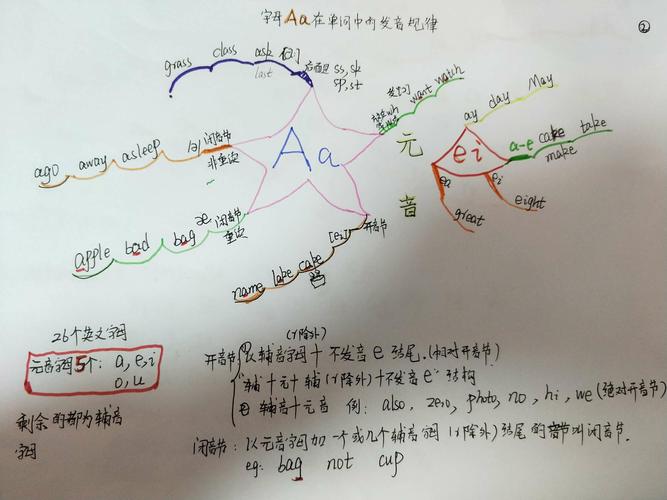 字母Aa在单词中的发音规律
②
grass class ask
last
后面是 ss, sk
sp, st
want watch
ago away asleep /ə/ 闭音节
非重读
Aa
元
音
ay day May
ei
a-e cake take
make
ea
great
ei
eight
apple bad bag æ 闭音节
重读
name lake cake [eɪ] 开音节
26个英文字母
元音字母5个: a, e, i
o, u
剩余的都为辅音
字母
(r除外)
开音节 ① 以辅音字母+不发音e结尾.(相对开音节)
"辅+元+辅(r除外)+不发音e"结构
② 辅音+元音 例: also, zero, photo, no, hi, we(绝对开音节)
闭音节: 以元音字母加一个或几个辅音字母(r除外)结尾的音节叫闭音节.
eg: bag not cup